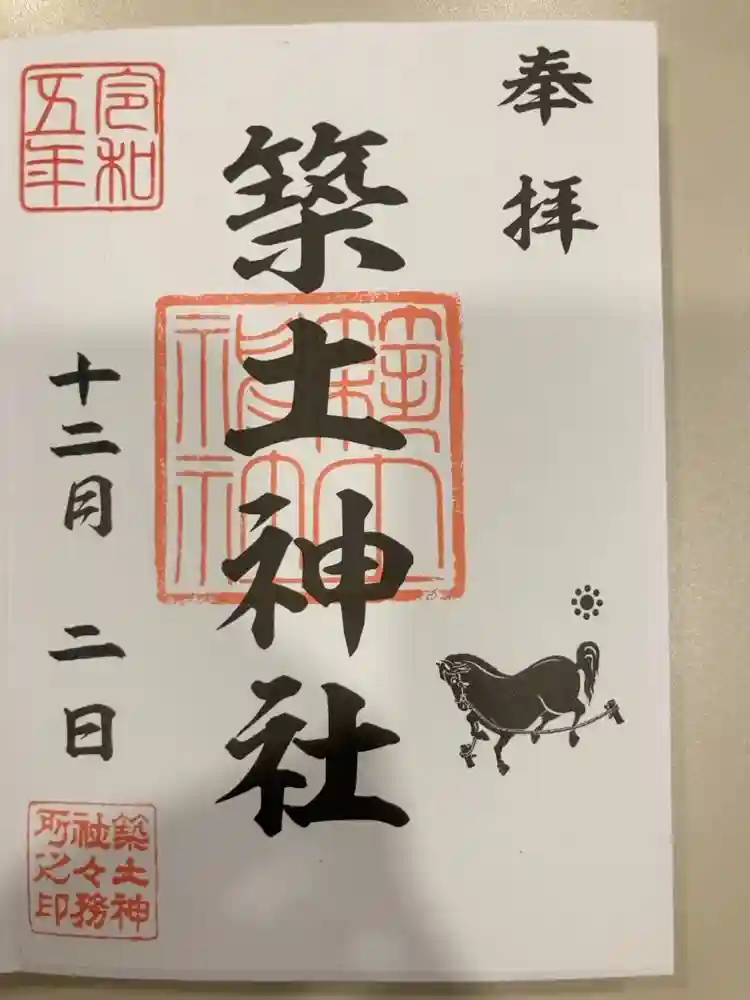 奉拝
築土神社
築土神社
令和五年
十二月二日
築土神社々務所之印